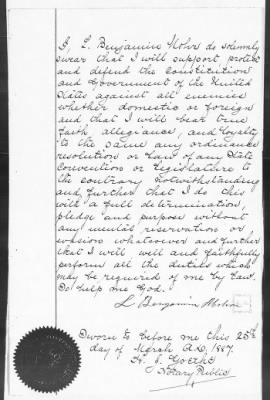 I, L. Benjamin Mohr do solemnly
swear that I will support, protect
and defend the Constitution
and Government of the United
States against all enemies
whether domestic or foreign
and that I will bear true
faith allegiance, and loyalty
to the same any ordinance
resolution or Law of any State
Convention or Legislature to
the contrary notwithstanding
and further that I do this
with a full determination,
pledge and purpose without
any mental reservation or
evasions whatsoever and further
that I will well and faithfully
perform all the duties which
may be required of me by Law.
So help me God.
L. Benjamin
Sworn to before me this 25th
day of March A.D. 1887.
Notary Public